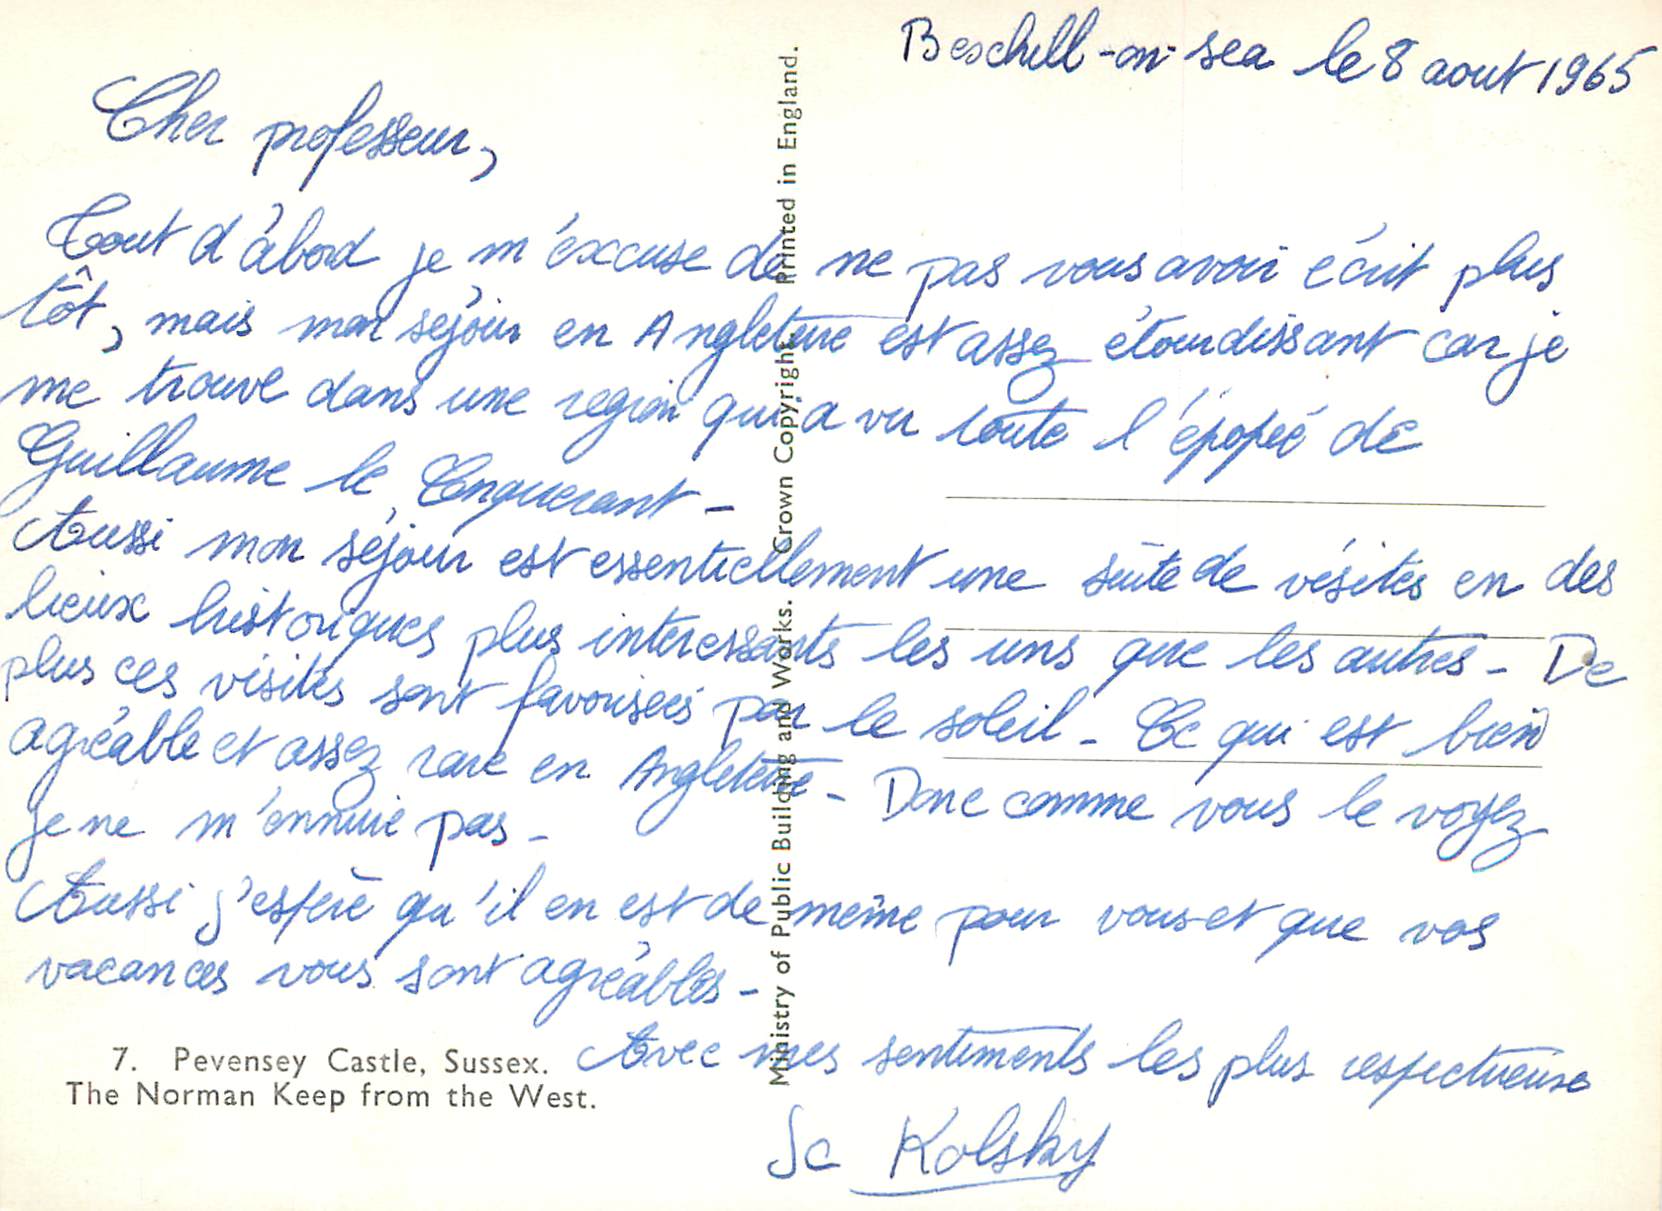 Bexchill-on-sea le 8 aout 1965
Cher professeur,
Tout d'àbord je m'éxcuse de ne pas vous avoir écrit plus
tôt, mais mon séjour en Angleterre est assez étourdissant car je
me trouve dans une region qui a vu toute l'épopée de
Guillaume le Conquerant -
Aussi mon séjour est essentiellement une suite de visites en des
lieux historiques plus interessants les uns que les autres - De
plus ces visites sont favorisées par le soleil - Ce qui est bien
agréable et assez rare en Angleterre - Donc comme vous le voyez
je ne m'ennuie pas -
Aussi j'espère qu'il en est de même pour vous et que vos
vacances vous sont agréables -
Avec mes sentiments les plus respectueux
JC Kolsky
7. Pevensey Castle, Sussex.
The Norman Keep from the West.
Ministry of Public Building and Works. Crown Copyright. Printed in England.